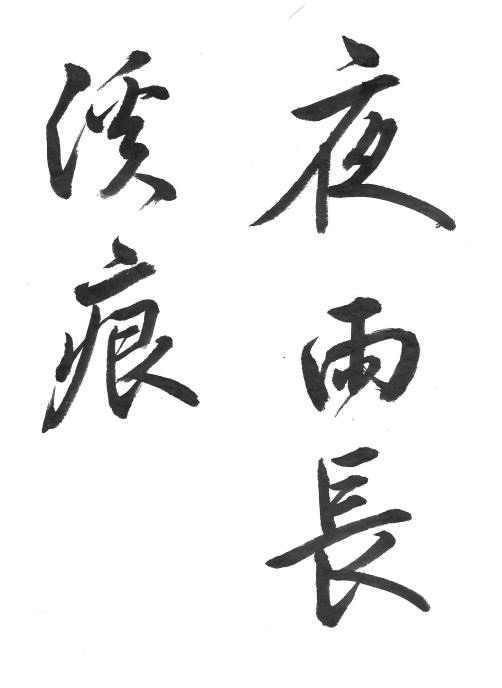 夜雨長
溪痕